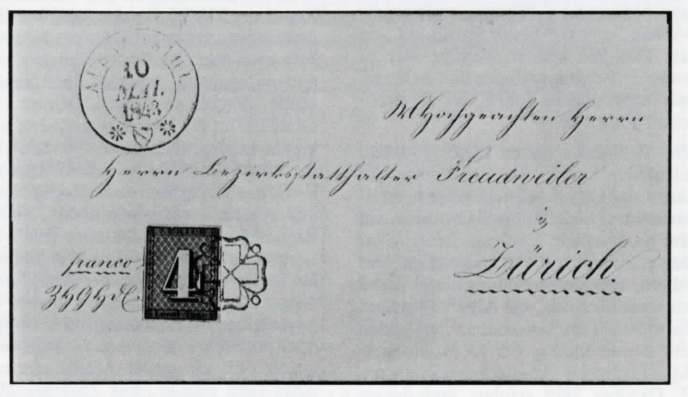 10
1843
Hochgeachten Herrn
Herrn Bezirksstatthalter Freudweiler
Zürich.
franco
4